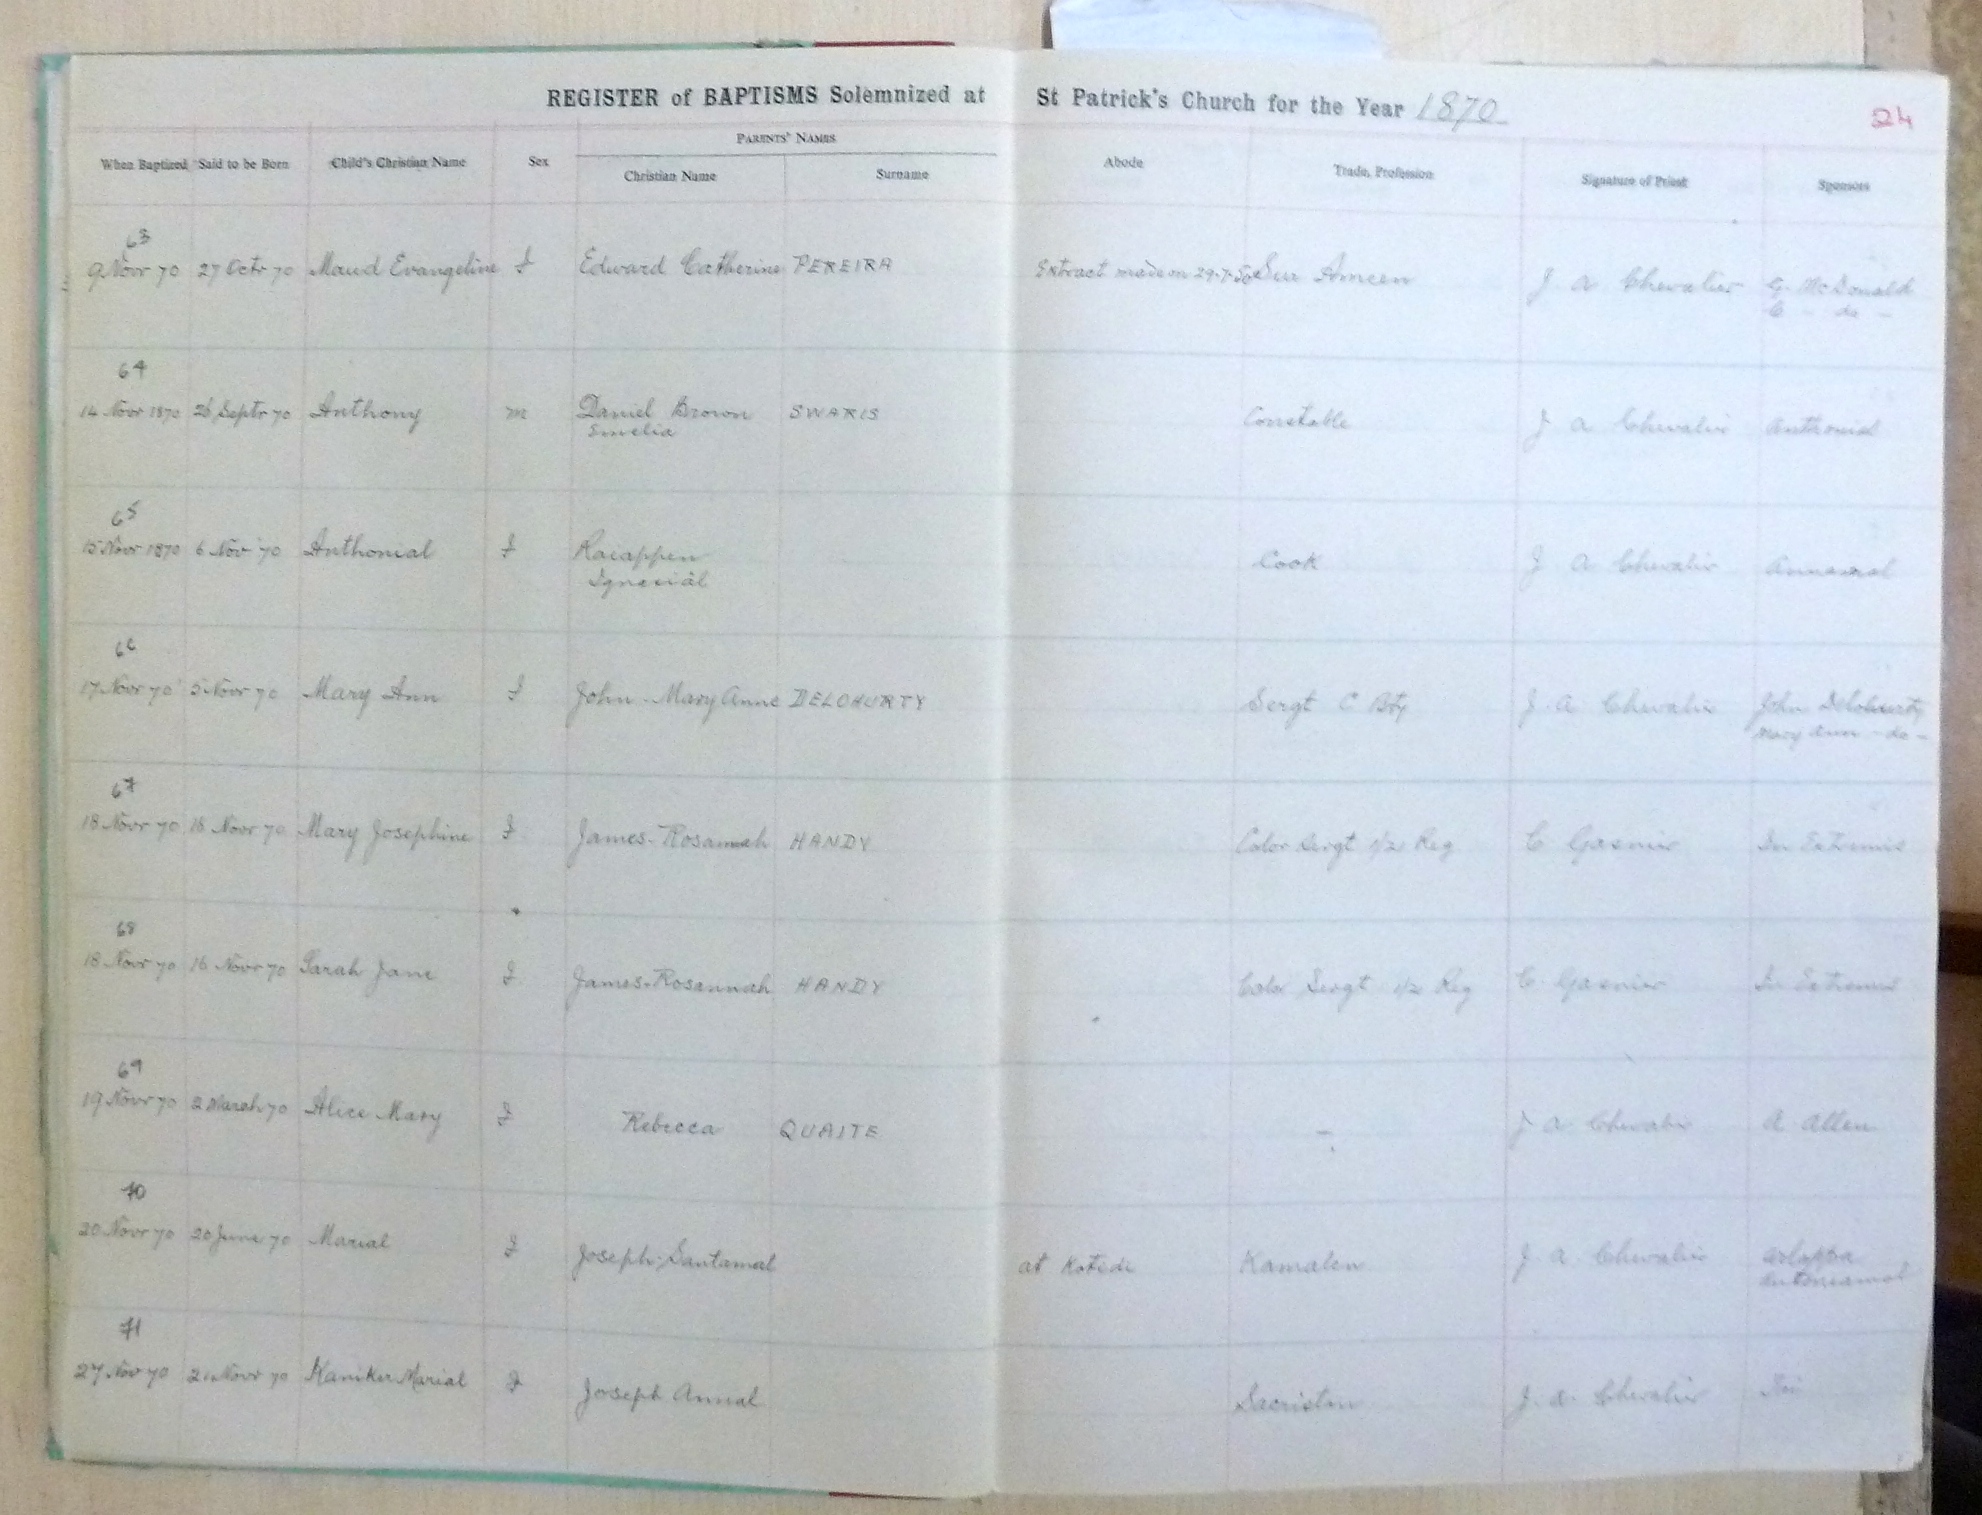 REGISTER of BAPTISMS Solemnized at St Patrick's Church for the Year 1870
24
When Baptized Said to be Born Child's Christian Name Sex PARENTS' NAMES Abode Trade, Profession Signature of Priest Sponsors
Christian Name Surname
63
9 Novr 70 27 Octr 70 Maud Evangeline f Edward Catherine PEREIRA Extract made on 29.7.50 Ameen J. A Chevalier G. McDonald
C - do -
64
14 Novr 1870 26 Septr 70 Anthony m Daniel Brown SWARIS Constable J A Chevalier Anthonial
Emelia
65
15 Novr 1870 6 Nov 70 Anthonial f Raiappen Cook J A Chevalier
Ignacial
66
17 Novr 70 5 Novr 70 Mary Ann f John - Mary Anne DELOHURTY Sergt C Bty J. A Chevalier John Delohurty
Mary Ann - do -
67
18 Novr 70 16 Novr 70 Mary Josephine f James - Rosannah HANDY Color Sergt 1/21 Reg C Gasnier In Extremis
68
18 Novr 70 16 Novr 70 Sarah Jane f James - Rosannah HANDY Color Sergt Reg C. Gasnier In Extremis
69
19 Novr 70 2 March 70 Alice Mary f Rebecca QUAITE - J A Chevalier A Allen
70
20 Novr 70 20 June 70 Marial f Joseph - Santamal at Kotedi J. A. Chevalier
71
27 Nov 70 Novr 70 Marial f Joseph Annal Sacristan J. A. Chevalier